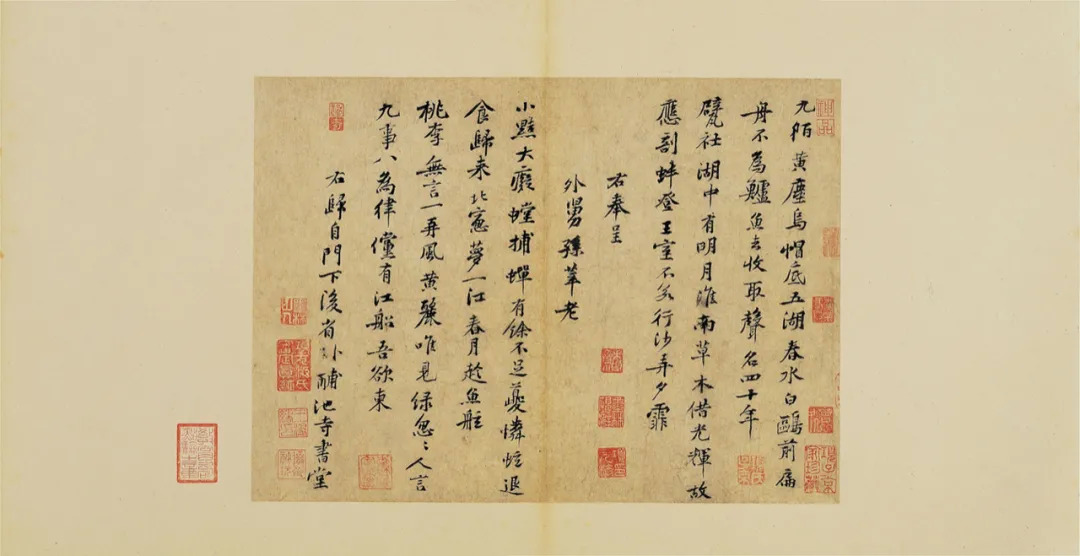 神品
九陌黃塵烏帽底五湖春水白鷗前扁
舟不為鱸魚去收取聲名四十年
甓社湖中有明月淮南草木借光輝故
應剖蚌登王室不若行沙弄夕霏
右奉呈
外舅孫莘老
小黠大癡螳捕蟬有餘不足夔憐蚿退
食歸來北窻夢一江春月趂魚舡
桃李無言一再風黃鸝唯見綠怱〻人言
九事八為律儻有江船吾欲東
右歸自門下後省卧酺池寺書堂
項子京家珍藏